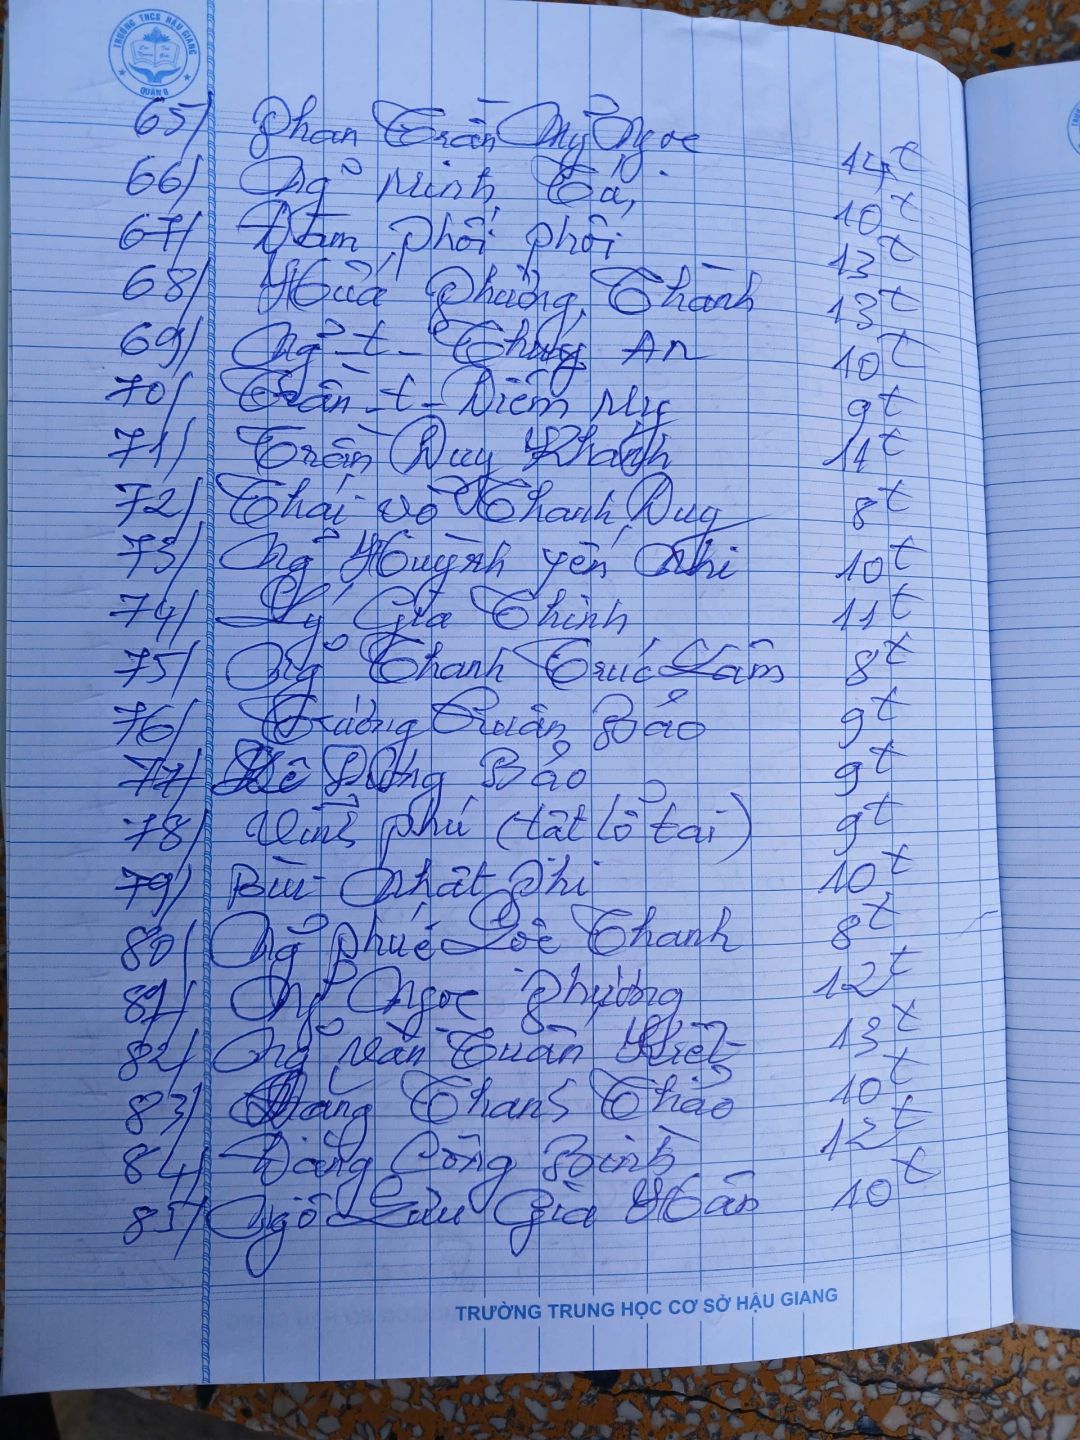 TRƯỜNG THCS HẬU GIANG
QUẬN 6
65/ Phan Trần Mỹ Ngọc 14t
66/ Ng~ Minh Tú 10t
67/ Đàm Phối Phối 13t
68/ Hứa Phường Thành 13t
69/ Ng~ t Thúy An 10t
70/ Trần t Diễm My 9t
71/ Trần Duy Khánh 11t
72/ Thái Võ Thanh Duy 8t
73/ Ng~ Huỳnh Yến Nhi 10t
74/ Lý Gia Thịnh 11t
75/ Ng~ Thanh Trúc Lâm 8t
76/ Trương Quân Bảo 9t
77/ Lê Dương Bảo 9t
78/ Vĩnh Phú (tật lỗ tai) 9t
79/ Bùi Nhất Phi 10t
80/ Ng~ Phúc Lộc Thanh 8t
81/ Ng~ Ngọc Phượng 12t
82/ Ng~ Văn Tuấn Kiệt 13t
83/ Đặng Thanh Thảo 10t
84/ Đặng Công Bình 12t
85/ Ngô Lưu Gia Hân 10t
TRƯỜNG TRUNG HỌC CƠ SỞ HẬU GIANG